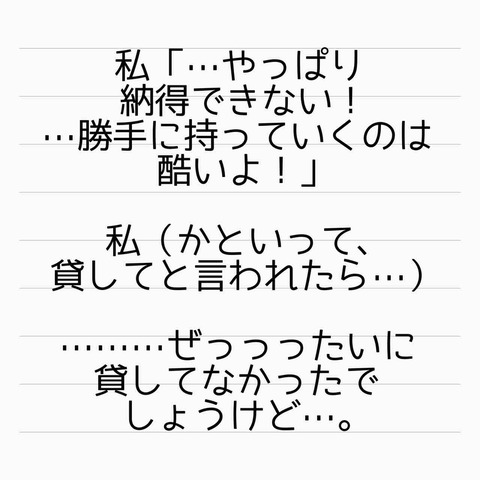 私「…やっぱり
納得できない！
…勝手に持っていくのは
酷いよ！」
私（かといって、
貸してと言われたら…）
………ぜっっったいに
貸してなかったで
しょうけど…。